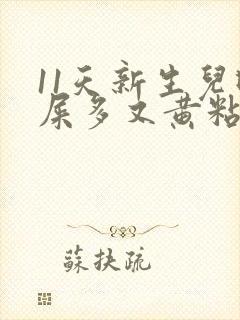 11天新生兒
屎多又黃粘
蘇扶疏